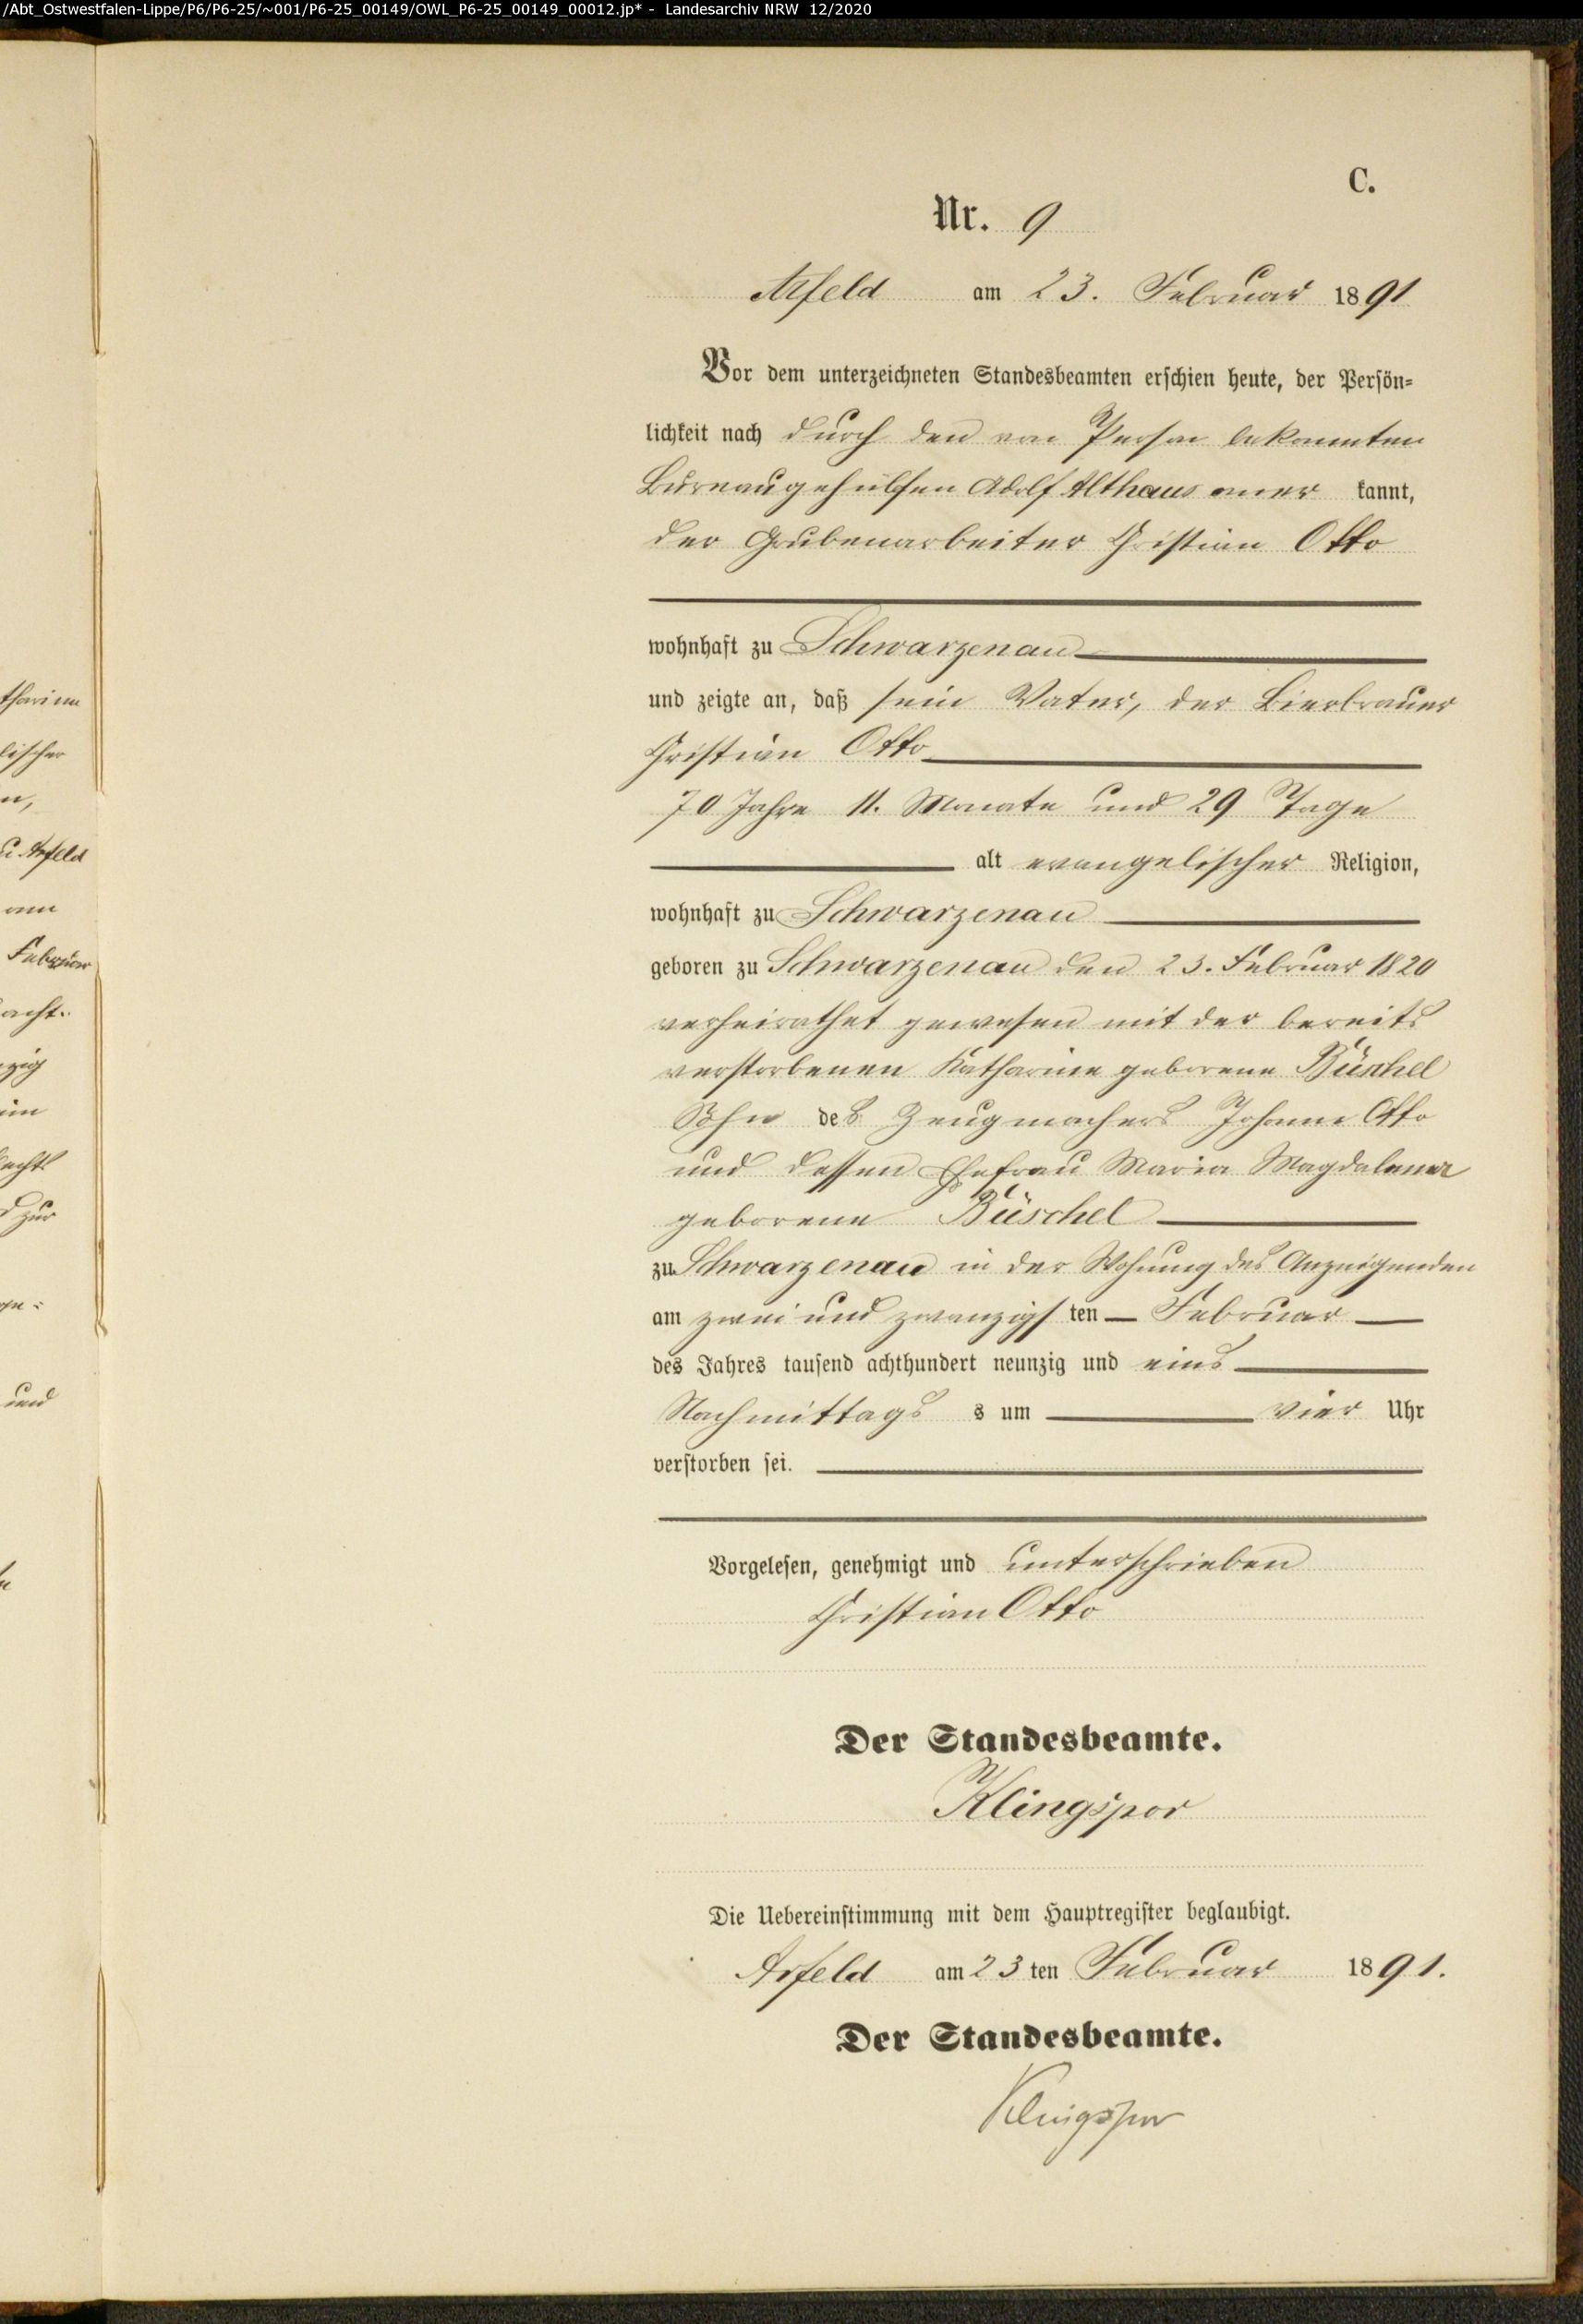 /Abt_Ostwestfalen-Lippe/P6/P6-25/~001/P6-25_00149/OWL_P6-25_00149_00012.jp* - Landesarchiv NRW 12/2020
C.
Nr. 9
Arfeld am 23. Februar 1891
Vor dem unterzeichneten Standesbeamten erschien heute, der Persön-
lichkeit nach durch den von Person bekannten
Bureaugehülfen Adolf Althaus aner kannt,
der Grubenarbeiter Christian Otto
wohnhaft zu Schwarzenau
und zeigte an, daß sein Vater, der Bierbrauer
Christian Otto
70 Jahre 11. Monate und 29 Tage
alt evangelischer Religion,
wohnhaft zu Schwarzenau
geboren zu Schwarzenau den 23. Februar 1820
verheirathet gewesen mit der bereits
verstorbenen Katharine geborene Büschel
Sohn des Zeugmachers Johann Otto
und dessen Ehefrau Maria Magdalena
geborene Büschel
zu Schwarzenau in der Wohnung des Anzeigenden
am zwei und zwanzigs ten Februar
des Jahres tausend achthundert neunzig und eins
Nachmittags s um vier Uhr
verstorben sei.
Vorgelesen, genehmigt und unterschrieben
Christian Otto
Der Standesbeamte.
Klingspor
Die Uebereinstimmung mit dem Hauptregister beglaubigt.
Arfeld am 23 ten Februar 1891.
Der Standesbeamte.
Klingspor